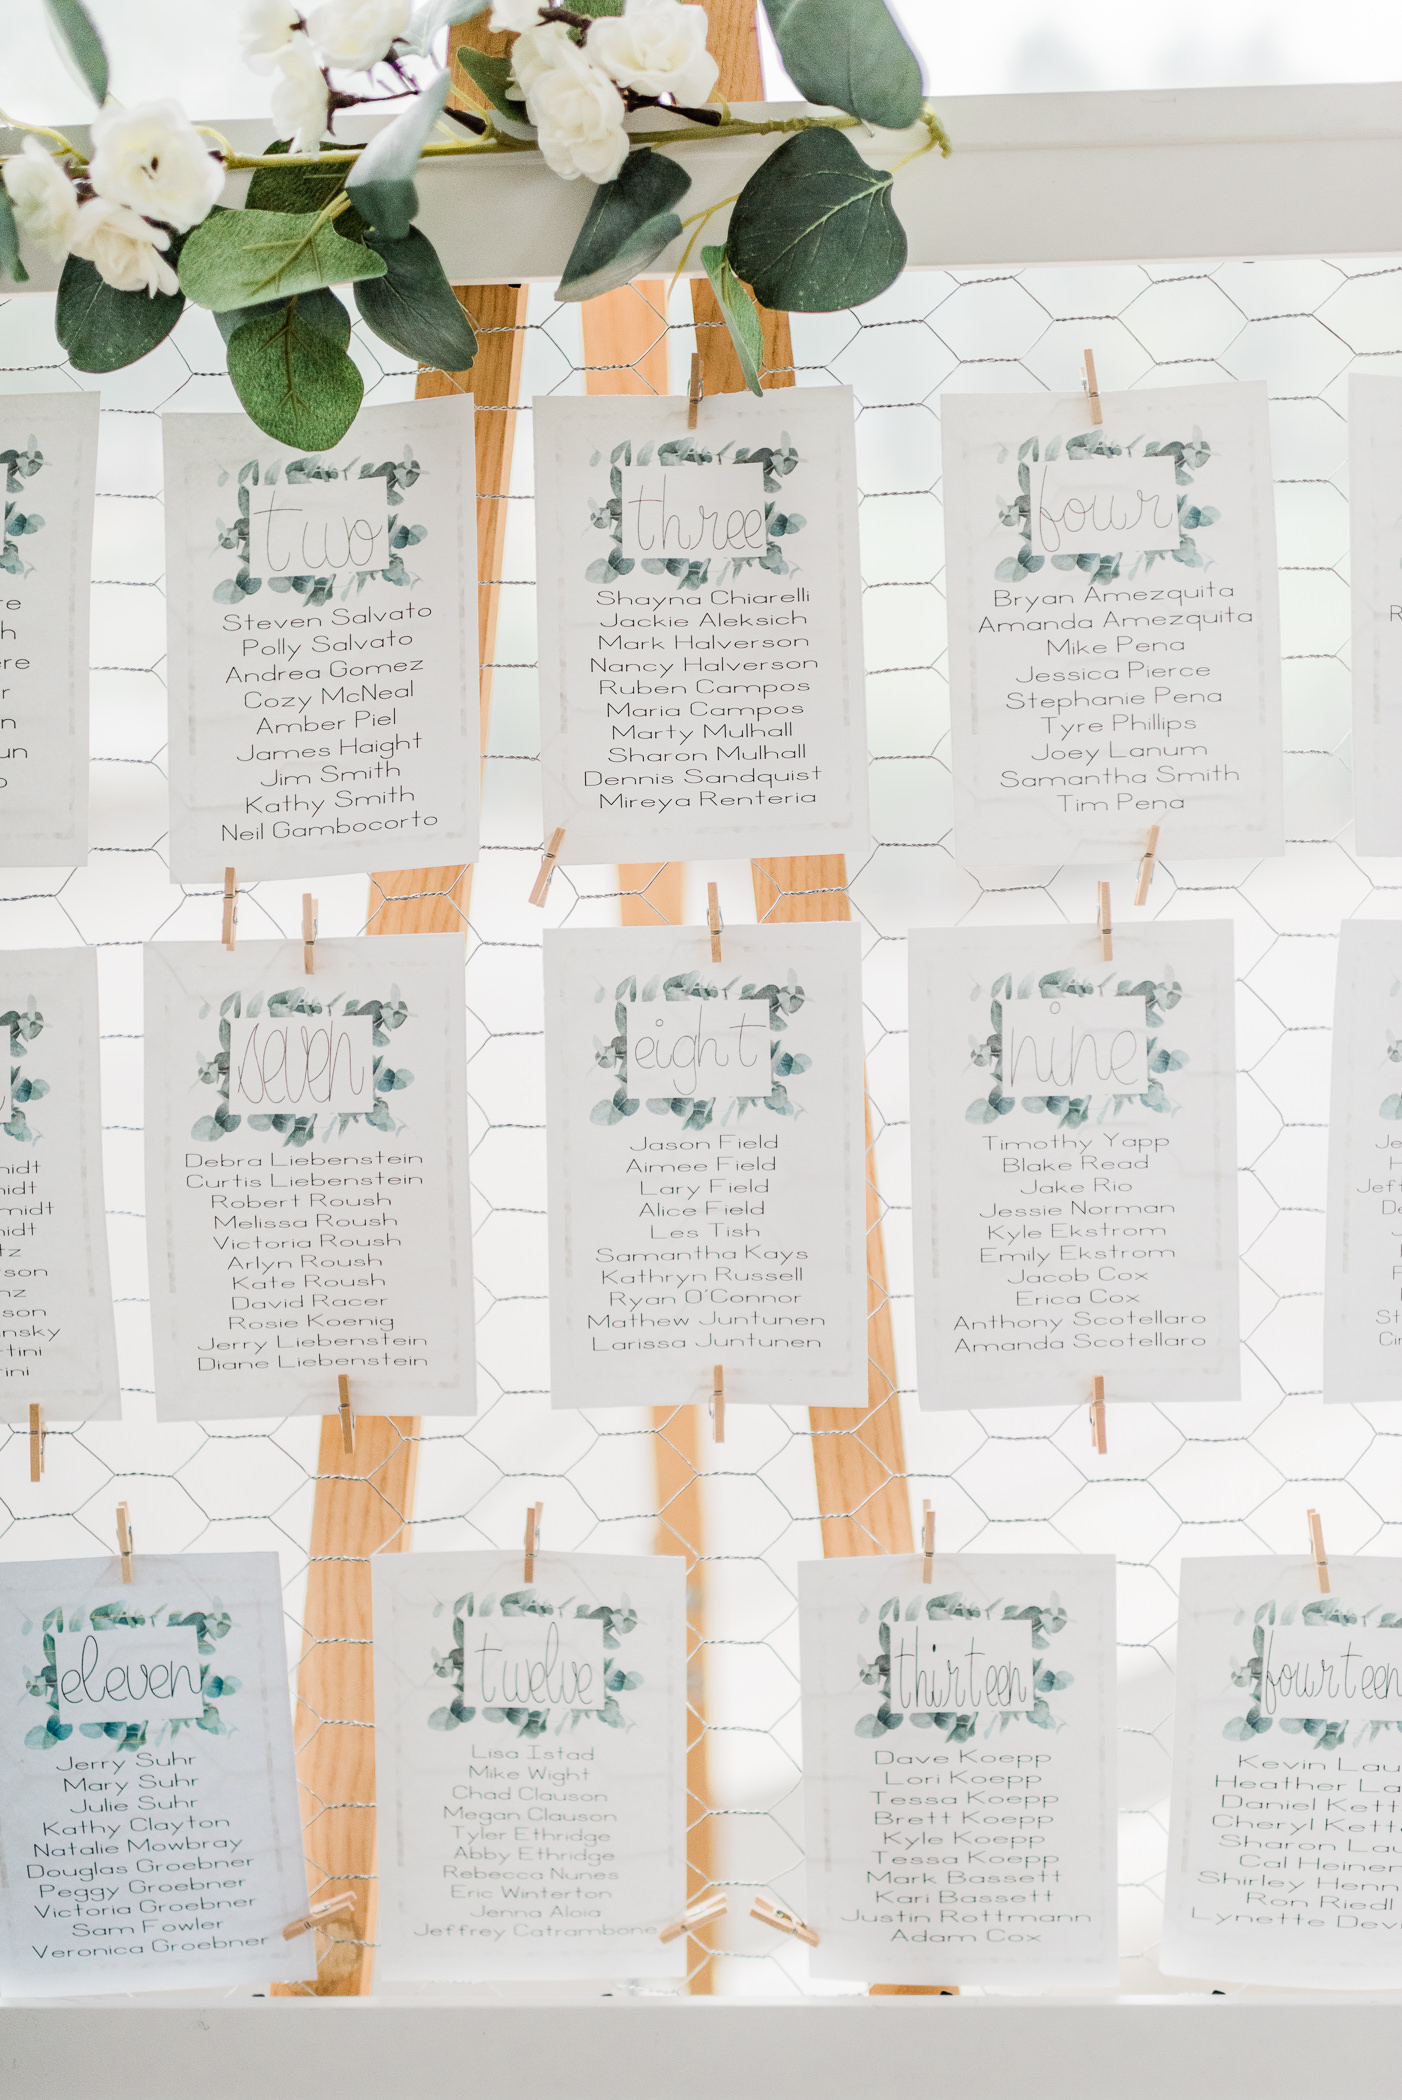 two
Steven Salvato
Polly Salvato
Andrea Gomez
Cozy McNeal
Amber Piel
James Haight
Jim Smith
Kathy Smith
Neil Gambocorto
three
Shayna Chiarelli
Jackie Aleksich
Mark Halverson
Nancy Halverson
Ruben Campos
Maria Campos
Marty Mulhall
Sharon Mulhall
Dennis Sandquist
Mireya Renteria
four
Bryan Amezquita
Amanda Amezquita
Mike Pena
Jessica Pierce
Stephanie Pena
Tyre Phillips
Joey Lanum
Samantha Smith
Tim Pena
seven
Debra Liebenstein
Curtis Liebenstein
Robert Roush
Melissa Roush
Victoria Roush
Arlyn Roush
Kate Roush
David Racer
Rosie Koenig
Jerry Liebenstein
Diane Liebenstein
eight
Jason Field
Aimee Field
Lary Field
Alice Field
Les Tish
Samantha Kays
Kathryn Russell
Ryan O'Connor
Mathew Juntunen
Larissa Juntunen
nine
Timothy Yapp
Blake Read
Jake Rio
Jessie Norman
Kyle Ekstrom
Emily Ekstrom
Jacob Cox
Erica Cox
Anthony Scotellaro
Amanda Scotellaro
eleven
Jerry Suhr
Mary Suhr
Julie Suhr
Kathy Clayton
Natalie Mowbray
Douglas Groebner
Peggy Groebner
Victoria Groebner
Sam Fowler
Veronica Groebner
twelve
Lisa Istad
Mike Wight
Chad Clauson
Megan Clauson
Tyler Ethridge
Abby Ethridge
Rebecca Nunes
Eric Winterton
Jenna Aloia
Jeffrey Catrambone
thirteen
Dave Koepp
Lori Koepp
Tessa Koepp
Brett Koepp
Kyle Koepp
Tessa Koepp
Mark Bassett
Kari Bassett
Justin Rottmann
Adam Cox
fourteen
Kevin Lau
Heather La
Daniel Kett
Cheryl Kett
Sharon Lau
Cal Heiner
Shirley Henn
Ron Riedl
Lynette Dev